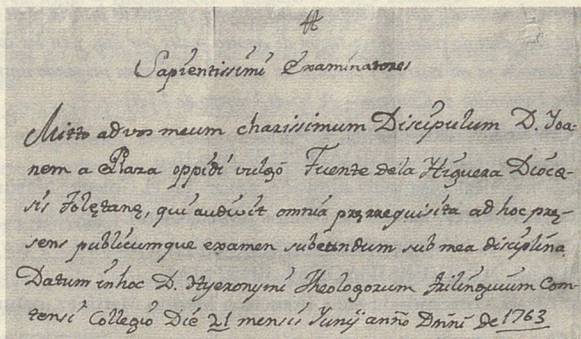 Sapientissimi Examinatores
Mitto ad vos meum charissimum Discipulum D. Joa-
nem a Plaza oppidi vulgò Fuente de la Higuera Dioce-
sis Toletanę, qui audivit omnia pręrrequisita ad hoc prę-
sens publicumque examen subeundum sub mea disciplina.
Datum in hoc D. Hyeronymi Theologorum trilinguium Com-
tensi Collegio Die 21 mensis Junij anño Dñni de 1763